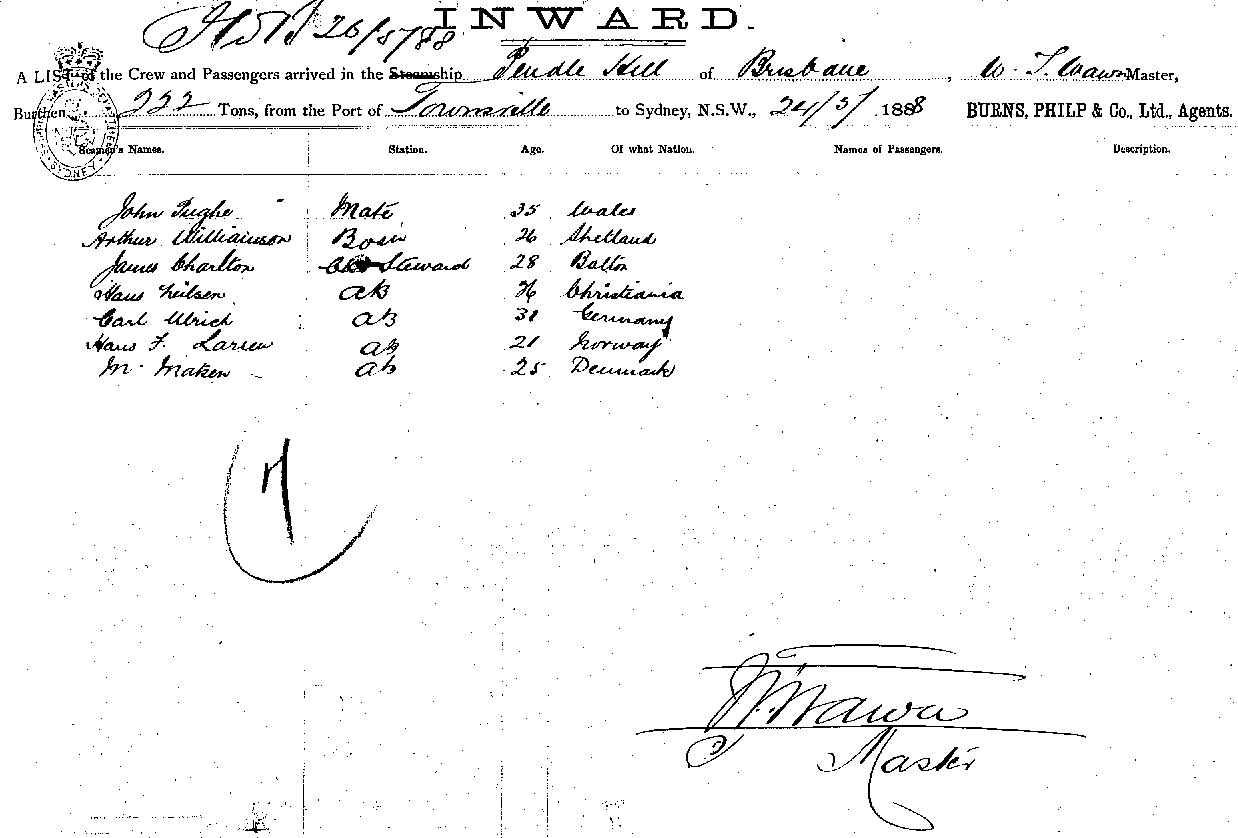 INWARD.
26/5/88
A LIST of the Crew and Passengers arrived in the Steamship Pendle Hill of Brisbane, W. T. Wawn Master,
Burthen 222 Tons, from the Port of Townsville to Sydney, N.S.W., 24/5/1888 BURNS, PHILP & Co., Ltd., Agents.
Seamen's Names. Station. Age. Of what Nation. Names of Passengers. Description.
John Pughe Mate 35 Wales
Arthur Williamson Bosn 26 Shetland
James Charlton Steward 28 Bolton
Hans Neilsen AB 26 Christiania
Carl Ulrich AB 31 Germany
Hans F. Larsen AB 21 Norway
M. Maken AB 25 Denmark
7
W. T. Wawn
Master